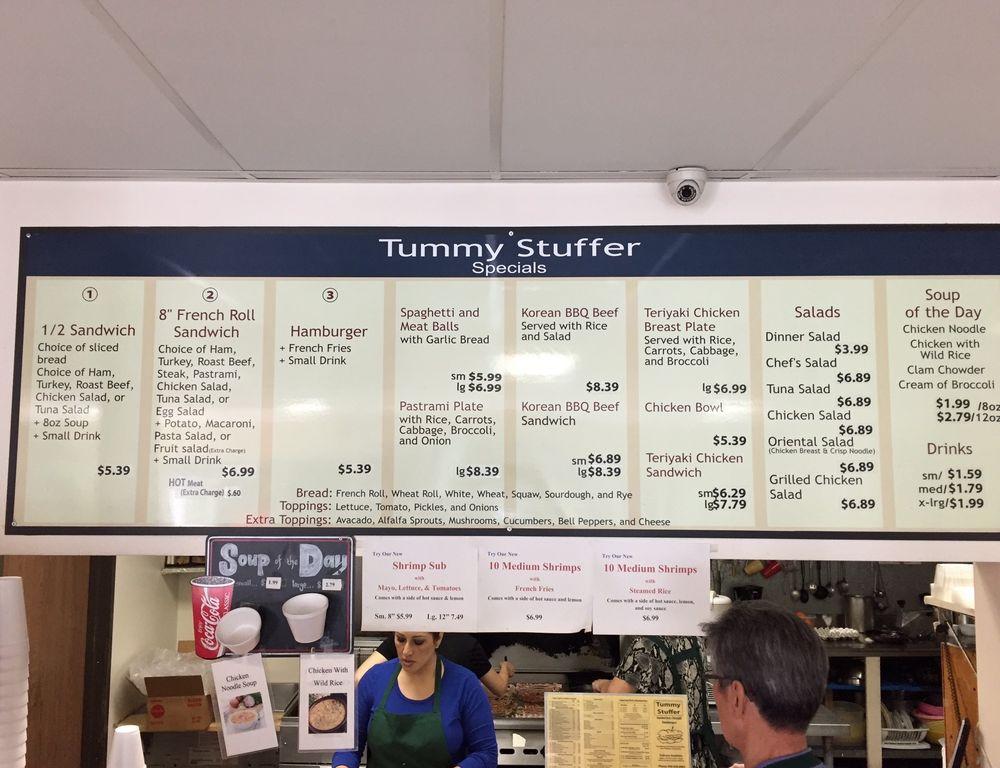 Tummy Stuffer
Specials
1
1/2 Sandwich
Choice of sliced
bread
Choice of Ham,
Turkey, Roast Beef,
Chicken Salad, or
Tuna Salad
+ 8oz Soup
+ Small Drink
$5.39
2
8" French Roll
Sandwich
Choice of Ham,
Turkey, Roast Beef,
Steak, Pastrami,
Chicken Salad,
Tuna Salad, or
Egg Salad
+ Potato, Macaroni,
Pasta Salad, or
Fruit salad(Extra Charge)
+ Small Drink
$6.99
HOT Meat
(Extra Charge) $.60
3
Hamburger
+ French Fries
+ Small Drink
$5.39
Spaghetti and
Meat Balls
with Garlic Bread
sm $5.99
lg $6.99
Pastrami Plate
with Rice, Carrots,
Cabbage, Broccoli,
and Onion
lg$8.39
Korean BBQ Beef
Served with Rice
and Salad
$8.39
Korean BBQ Beef
Sandwich
sm$6.89
lg$8.39
Teriyaki Chicken
Breast Plate
Served with Rice,
Carrots, Cabbage,
and Broccoli
lg$6.99
Chicken Bowl
$5.39
Teriyaki Chicken
Sandwich
sm$6.29
lg$7.79
Salads
Dinner Salad
$3.99
Chef's Salad
$6.89
Tuna Salad
$6.89
Chicken Salad
$6.89
Oriental Salad
(Chicken Breast & Crisp Noodle)
$6.89
Grilled Chicken
Salad
$6.89
Soup
of the Day
Chicken Noodle
Chicken with
Wild Rice
Clam Chowder
Cream of Broccoli
$1.99 /8oz
$2.79/12oz
Drinks
sm/ $1.59
med/$1.79
x-lrg/$1.99
Bread: French Roll, Wheat Roll, White, Wheat, Squaw, Sourdough, and Rye
Toppings: Lettuce, Tomato, Pickles, and Onions
Extra Toppings: Avacado, Alfalfa Sprouts, Mushrooms, Cucumbers, Bell Peppers, and Cheese
Soup of the Day
small... $ 1.99 large... $ 2.79
Coca-Cola
CLASSIC
Chicken
Noodle Soup
Chicken With
Wild Rice
Try Our New
Shrimp Sub
with
Mayo, Lettuce, & Tomatoes
Comes with a side of hot sauce & lemon
Sm. 8" $5.99 Lg. 12" 7.49
Try Our New
10 Medium Shrimps
with
French Fries
Comes with a side of hot sauce and lemon
$6.99
Try Our New
10 Medium Shrimps
with
Steamed Rice
Comes with a side of hot sauce, lemon,
and soy sauce
$6.99
Tummy
Stuffer